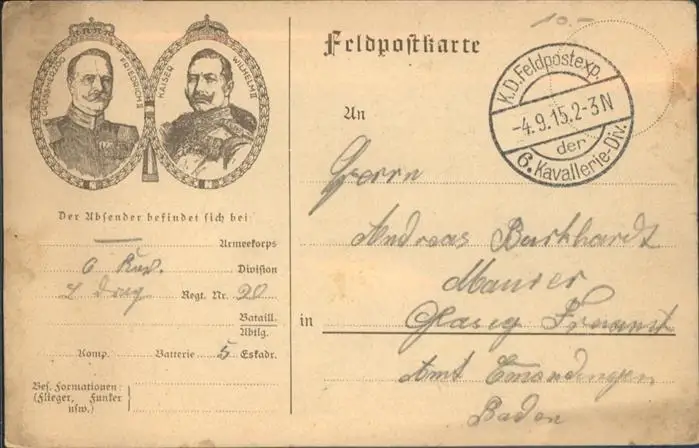 10.-
Feldpostkarte
GROSSHERZOG FRIEDRICH II
KAISER WILHELM II
K.D. Feldpostexp.
-4.9.15.2-3N
der
6. Kavallerie-Div.
An
Herrn
Andreas Burkhardt
Maurer
in
Amt Emmendingen
Baden
Der Absender befindet sich bei:
Armeekorps
6 Division
Regt. Nr. 20
Bataill.
Abtlg.
Komp. Batterie 5 Eskadr.
Bes. Formationen:
(Flieger, Funker
usw.)